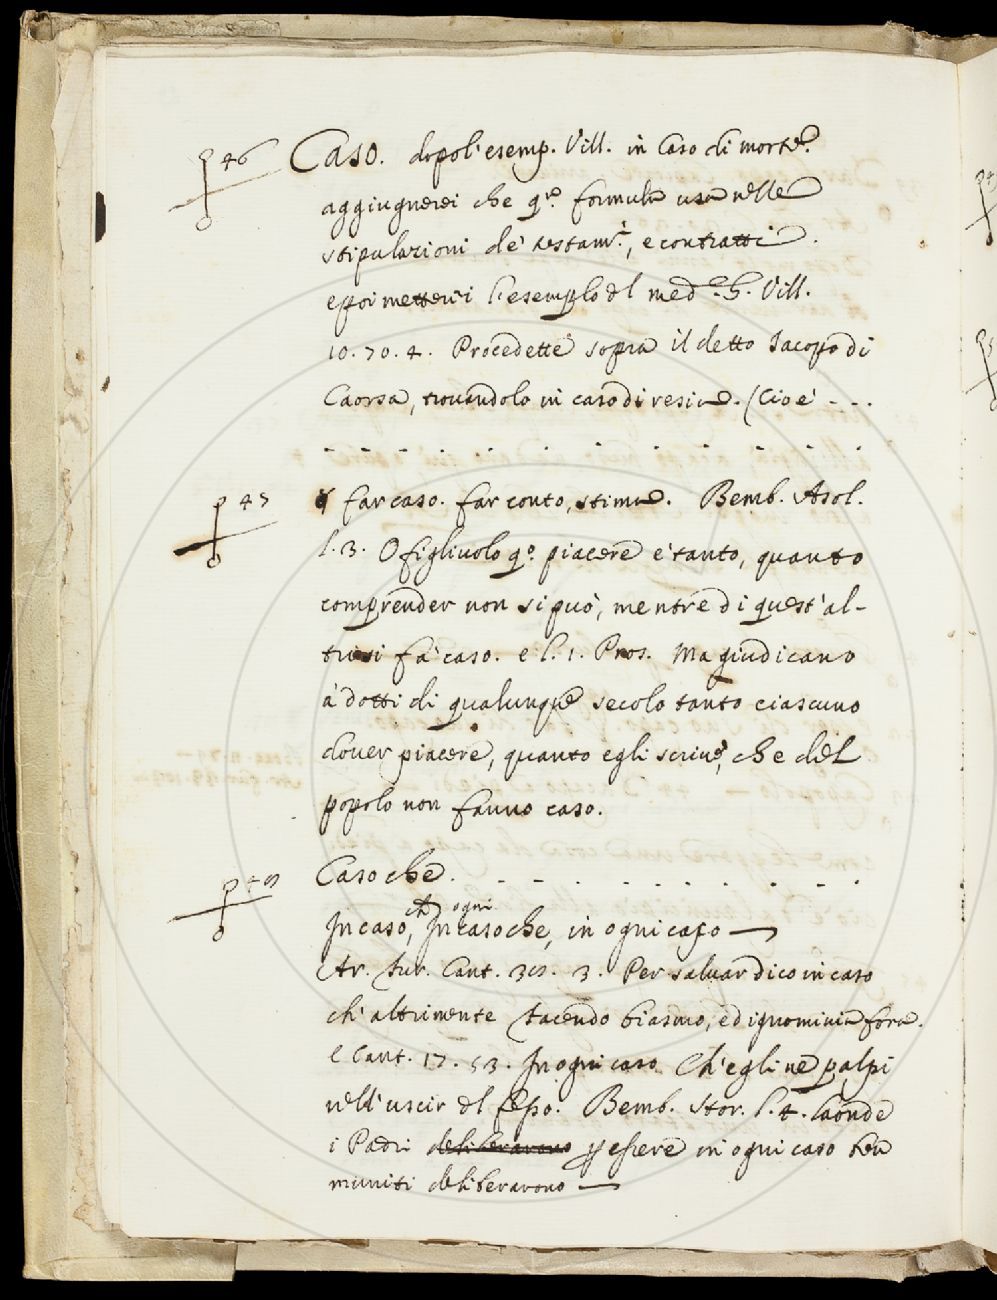 46 Caso. dopo l'esemp. Vill. in Caso di morte.
aggiugnerei che q.ᵃ formula usa nelle
stipulazioni de' testam.ᵗⁱ, e contratti.
e poi metterei l'esemplo del med.º G. Vill.
10. 70. 4. Procedette sopra il detto Iacopo di
Caorsa, trovandolo in caso di resia. (Cioè - - -
- - - - - - - - - - -
47 far caso. far conto, stima. Bemb. Asol.
l. 3. O figliuolo q.º piacere è tanto, quanto
comprender non si può, mentre di quest'al-
tresi fà caso. e l. 1. Pros. Ma giudicano
i dotti di qualunque secolo tanto ciascuno
dover piacere, quanto egli scrive, che del
popolo non fanno caso.
48 Caso che. - - - - - - - - - -
In caso, ch' In ogni caso che, in ogni caso —
Ar. Fur. Cant. 38. 3. Per salvar dico in caso
ch' altrimente facendo biasmo, ed ignominia fora.
e Cant. 17. 53. In ogni caso Ch'egli ne palpi
nell'uscir del sesso. Bemb. Stor. l. 4. laonde
i Padri deliberavono p essere in ogni caso ben
muniti deliberarono —